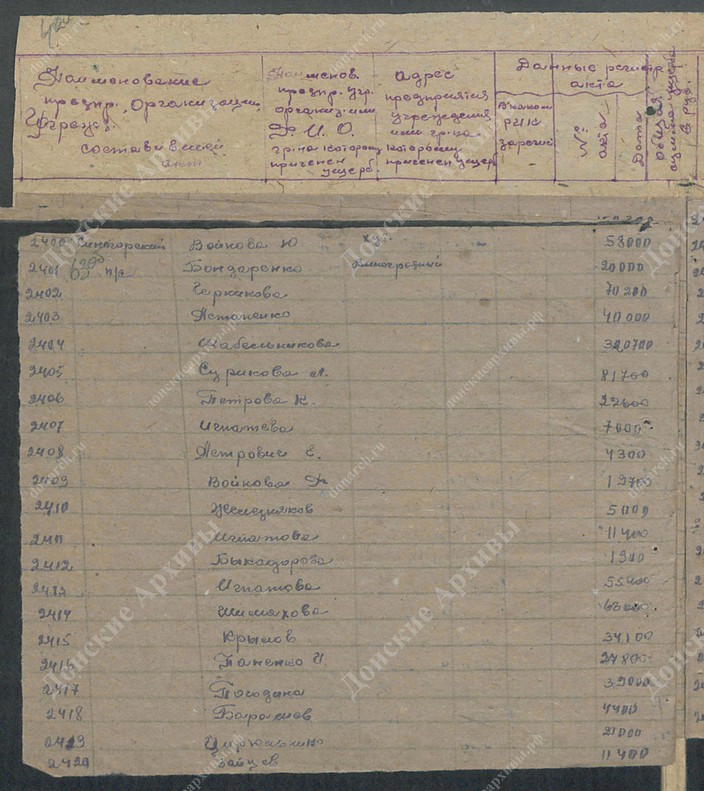 Наименование
предпр. Организации
Учрежд.
составившей
акт
Наименов.
предпр. учр.
организ. или
Ф. И. О.
гр-на которому
причинен
ущерб.
адрес
предприятия
учреждения
или гр-на
которому
причинен ущерб
Данные регистр.
акта
В каком
РИК
зарегис.
№
акта
Дата
общая
сумма ущерба
в руб.
2400 Синегорский Войкова Ю 58000
2401 п/с Бондаренко 20000
2402 Черникова 70200
2403 Астапенко 40000
2404 Кабельникова 320700
2405 Сурикова А. 81700
2406 Петрова К. 22600
2407 Игнатева 7000
2408 Петрович Е. 4300
2409 Войкова 12700
2410 Железняков 5000
2411 Игнатова 11400
2412 Быкадорова 1900
2413 Игнатова 55400
2414 Шишакова 63000
2415 Крылов 34100
2416 Паненко И. 27800
2417 Погодина 39000
2418 Баранов 4400
2419 21000
2420 Зайцев 11400
Донские Архивы
donarch.ru
донскиеархивы.рф